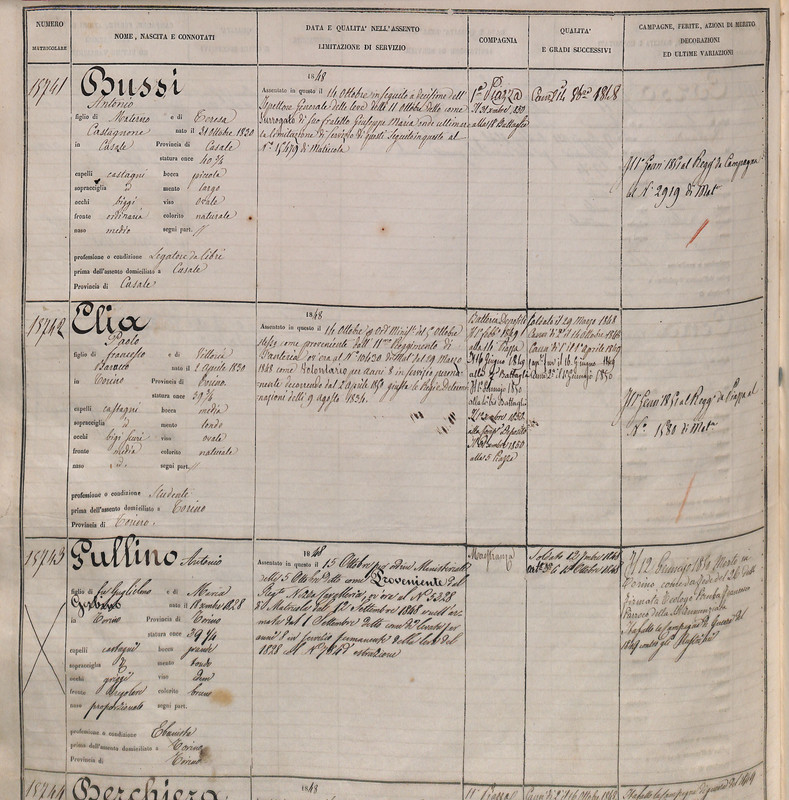 NUMERO
MATRICOLARE
NOME, NASCITA E CONNOTATI
DATA E QUALITA' NELL'ASSENTO
LIMITAZIONE DI SERVIZIO
COMPAGNIA
QUALITA'
E GRADI SUCCESSIVI
CAMPAGNE, FERITE, AZIONI DI MERITO
DECORAZIONI
ED ULTIME VARIAZIONI
15741
Bussi
Antonio
figlio di Materno e di Teresa
Castagnone nato il 31 Ottobre 1830
in Casale Provincia di Casale
statura once 40 3/4
capelli castagni bocca piccola
sopracciglia d mento largo
occhi biggi viso ovale
fronte ordinaria colorito naturale
naso medio segni part. //
professione o condizione Legatore da libri
prima dell'assento domiciliato a Casale
Provincia di Casale
1848
Assentato in questo il 14 Ottobre in seguito a decisione dell'
Ispettore Generale delle Leve delli 11 Ottobre detto come
Surrogato di suo fratello Giuseppe Maria onde ultimare
la limitazione di servizio di questi seguito in questo al
N.º 15479 di Matricola
1ª Piazza
alla 1ª Battaglia
Cann.e il 8bre 1848
Il 1º Genn. 1851 al Regg.to da Campagna
al N. 2919 di Mat.
15742
Elia
Paolo
figlio di francesco e di Vittoria
nato il 1 Aprile 1830
in Torino Provincia di Torino
statura once 39 1/2
capelli castagni bocca media
sopracciglia d mento tondo
occhi bigi scuri viso ovale
fronte media colorito naturale
naso segni part. //
professione o condizione Studente
prima dell'assento domiciliato a Torino
Provincia di Torino
1848
Assentato in questo il 16 Ottobre d'Ord. Minist. del Ottobre
come proveniente dall' 11mo Reggimento di
Fanteria ov'era al N. 10630 di Mat. dal 29 Marzo
1848 come Volontario per anni 8 in servizio permanente
decorrendo dal 2 aprile 1850 giusta le Regie Determinazioni
delli 9 agosto 1834.
Batteria Deposito
Il 1º febb. 1849
alla Piazza
Il 16 Giugno 1849
alla Battaglia
Il 1º Gennaio 1850
alla Battaglia
alla Deposito
1850
alla 5 Piazza
Soldato il 29 Marzo 1848
Cann. di 2ª il 16 Ottobre 1848
Cann. di 1ª il 1º aprile 1849
il 16 Giugno 1849
il 1 Gennaio 1850
Il 1º Genn. 1851 al Regg.to da Piazza al
N. 1580 di Mat.
15743
Pullino Antonio
figlio di fu Guglielmo e di Maria
nato il 1828
in Torino Provincia di Torino
statura once 39 1/4
capelli castagni bocca grande
sopracciglia d mento tondo
occhi griggi viso
fronte regolare colorito bruno
naso proporzionato segni part.
professione o condizione Ebanista
prima dell'assento domiciliato a Torino
Provincia di Torino
1848
Assentato in questo il 15 Ottobre per ordine Ministeriale
delli 5 Ottobre detto come Proveniente dal
Reg.to Nizza Cavalleria, ov'era al N. 5328
di Matricola dal 12 Settembre 1848
delli 1 Settembre detto levato per
anni 8 in servizio permanente della leva del
1828 col N. estrazione
Maestranza
Soldato 12 7mbre 1848
il 15 Ottobre 1848
Il 12 Gennajo 1850 Morto in
Torino, come da fede del 26 detto
firmata Teologo
Parroco della SS. Annunziata
Ha fatto la Campagna di Guerra del
1849 contro gli Austriaci
15744
Berchiera
1848
Piazza
Cann. di 2ª il 16 Ottobre 1848
Ha fatto la Campagna di guerra del 1849